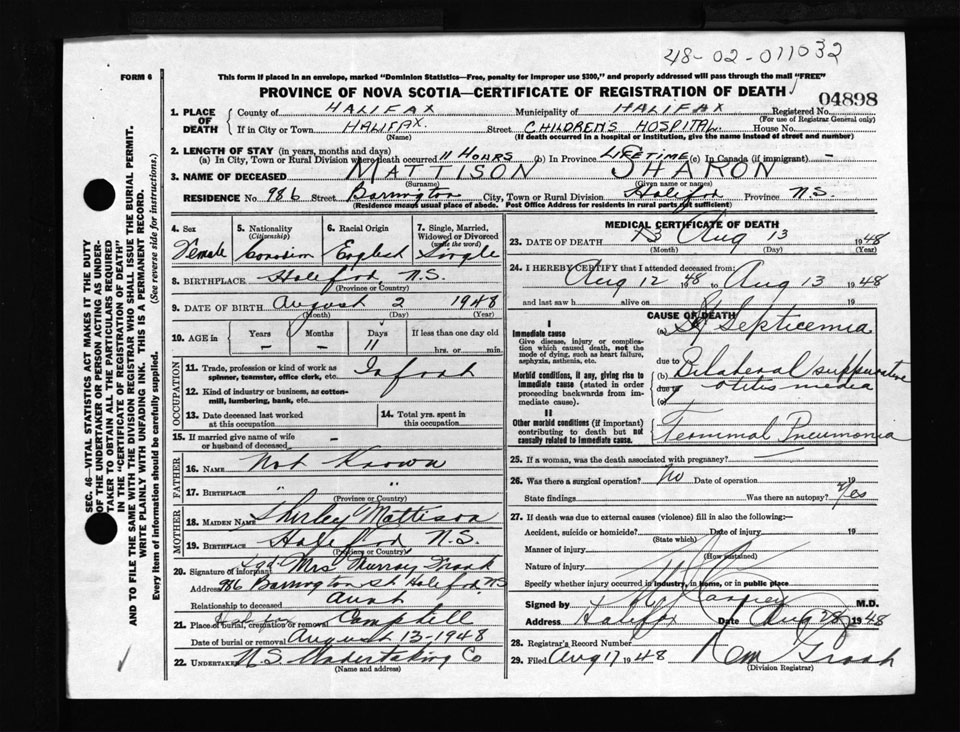 48-02-011032
FORM 6
This form if placed in an envelope, marked "Dominion Statistics—Free, penalty for improper use $300," and properly addressed will pass through the mail "FREE"
PROVINCE OF NOVA SCOTIA—CERTIFICATE OF REGISTRATION OF DEATH
04898
1. PLACE OF DEATH
County of HALIFAX Municipality of HALIFAX Registered No.
(For use of Registrar General only)
If in City or Town HALIFAX. Street CHILDREN'S HOSPITAL. House No.
(Name) (If death occurred in a hospital or institution, give the name instead of street and number)
2. LENGTH OF STAY (in years, months and days)
(a) In City, Town or Rural Division where death occurred 11 HOURS (b) In Province LIFETIME (c) In Canada (if immigrant) -
3. NAME OF DECEASED MATTISON SHARON
(Surname) (Given name or names)
RESIDENCE No. 986 Street Barrington City, Town or Rural Division Halifax Province N.S.
(Residence means usual place of abode. Post Office Address for residents in rural parts not sufficient)
4. Sex Female
5. Nationality (Citizenship) Canadian
6. Racial Origin English
7. Single, Married, Widowed or Divorced (write the word) Single
8. BIRTHPLACE Halifax, N.S.
(Province or Country)
9. DATE OF BIRTH August 2 1948
(Month) (Day) (Year)
10. AGE in Years - Months - Days 11 If less than one day old
hrs. or min.
OCCUPATION
11. Trade, profession or kind of work as spinner, teamster, office clerk, etc. Infant
12. Kind of industry or business, as cotton-mill, lumbering, bank, etc.
13. Date deceased last worked at this occupation
14. Total yrs. spent in this occupation
15. If married give name of wife or husband of deceased -
FATHER
16. NAME Not Known
17. BIRTHPLACE " "
(Province or Country)
MOTHER
18. MAIDEN NAME Shirley Mattison
19. BIRTHPLACE Halifax N.S.
(Province or Country)
20. Signature of informant Sgd Mrs Murray
Address 986 Barrington St. Halifax, N.S.
Relationship to deceased Aunt
21. Place of burial, cremation or removal Halifax Campbell
Date of burial or removal August 13-1948
22. UNDERTAKER N.S. Undertaking Co
(Name and address)
MEDICAL CERTIFICATE OF DEATH
23. DATE OF DEATH Aug 13 1948
(Month) (Day) (Year)
24. I HEREBY CERTIFY that I attended deceased from:
Aug 12 1948 to Aug 13 1948
and last saw h alive on 19
CAUSE OF DEATH
I
Immediate cause
Give disease, injury or complication which caused death, not the mode of dying, such as heart failure, asphyxia, asthenia, etc.
(a) Septicemia
due to
Morbid conditions, if any, giving rise to immediate cause (stated in order proceeding backwards from immediate cause).
(b) Bilateral suppurative
due to otitis media
II
Other morbid conditions (if important) contributing to death but not causally related to immediate cause.
Terminal Pneumonia
25. If a woman, was the death associated with pregnancy? -
26. Was there a surgical operation? No Date of operation 19
State findings Was there an autopsy? Yes
27. If death was due to external causes (violence) fill in also the following:—
Accident, suicide or homicide? Date of injury 19
(State which)
Manner of injury
(How sustained)
Nature of injury
Specify whether injury occurred in industry, in home, or in public place
Signed by M.D.
Address Halifax Date Aug 28 1948
28. Registrar's Record Number
29. Filed Aug 17 1948
(Division Registrar)
SEC. 46—VITAL STATISTICS ACT MAKES IT THE DUTY
OF THE UNDERTAKER OR PERSON ACTING AS UNDER-
TAKER TO OBTAIN ALL THE PARTICULARS REQUIRED
IN THE "CERTIFICATE OF REGISTRATION OF DEATH"
AND TO FILE THE SAME WITH THE DIVISION REGISTRAR WHO SHALL ISSUE THE BURIAL PERMIT.
WRITE PLAINLY WITH UNFADING INK. THIS IS A PERMANENT RECORD.
Every item of information should be carefully supplied. (See reverse side for instructions.)